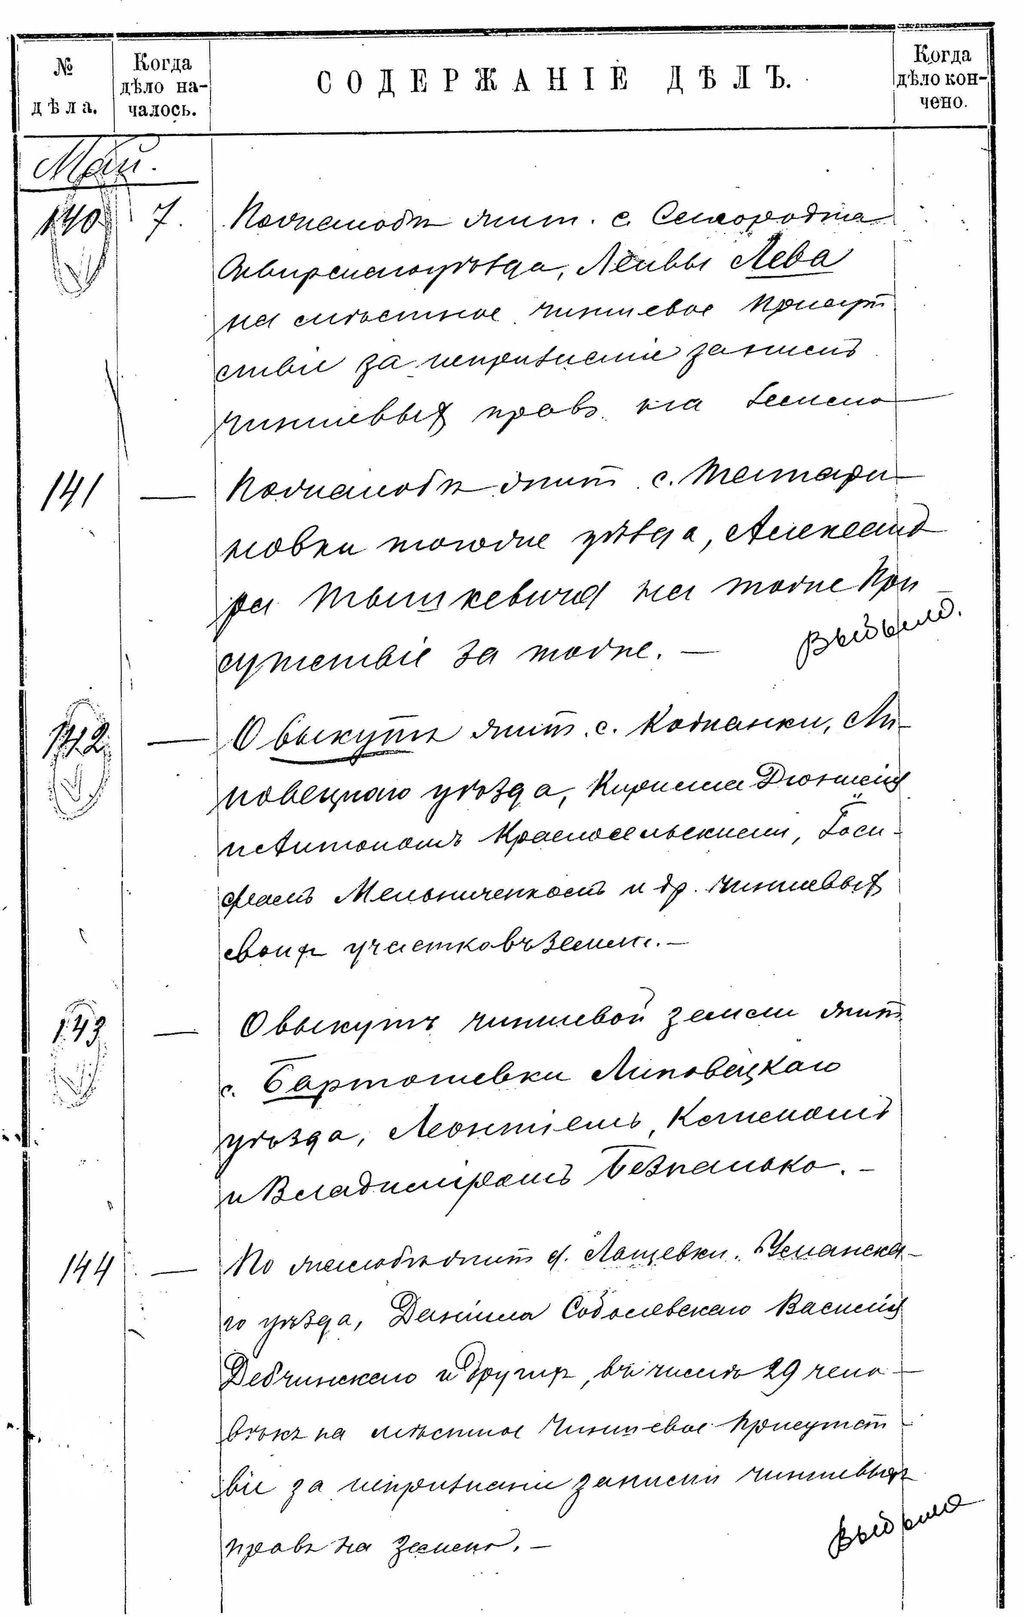 № дѣла.
Когда дѣло на-
чалось.
СОДЕРЖАНІЕ ДѢЛЪ.
Когда дѣло кон-
чено.
Май.
140 7. По жалобѣ жит. с. Самородка
Сквирскаго уѣзда, Лейвы Лева
на мѣстное чиншевое присут
ствіе за непризнаніе за нимъ
чиншевыхъ правъ на землю
141 — По жалобѣ жит. с. Татари
новки того же уѣзда, Александ
ра Тышкевича на тоже При
сутствіе за тоже. —
Выбыло.
142 — О выкупѣ жит. с. Кожанки, Ли-
повецкаго уѣзда, Кирилла
и Антономъ Красносельскими, Іоси-
фомъ Мельниченкомъ и др. чиншевыхъ
своихъ участковъ земли. —
143 — О выкупѣ чиншевой земли жит.
с. Бартошевки Липовецкаго
уѣзда, Леонтіемъ,
и Владиміромъ Безпалько. —
144 — По жалобѣ жит. д. Лащевки. Уманска-
го уѣзда, Даніила Соболевскаго Василія
Дебчинскаго и другихъ, въ числѣ 29 чело-
вѣкъ на мѣстное Чиншевое Присутст
віе за непризнаніе за ними чиншевыхъ
правъ на землю. —
Выбыло